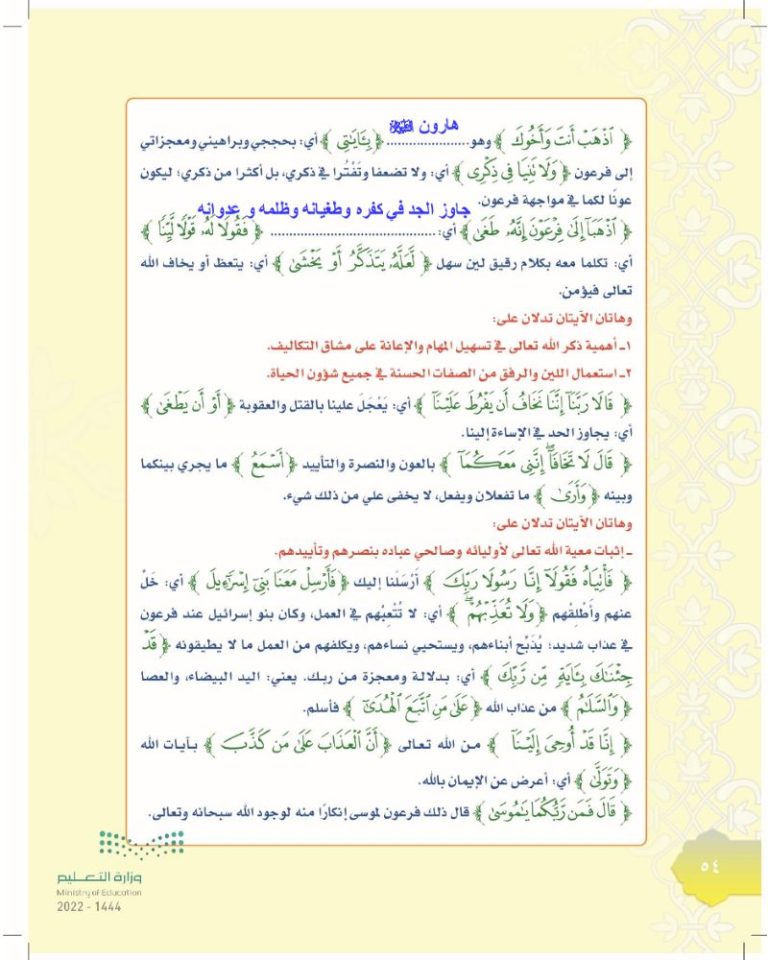 هارون ﷺ
﴿ ٱذۡهَبۡ أَنتَ وَأَخُوكَ ﴾ وهو......................﴿ بِـَٔايَٰتِي ﴾ أي: بحججي وبراهيني ومعجزاتي
إلى فرعون ﴿ وَلَا تَنِيَا فِي ذِكۡرِي ﴾ أي: ولا تضعفا وتَفْتُرا في ذكري، بل أكثرا من ذكري؛ ليكون
عونًا لكما في مواجهة فرعون.
جاوز الجد في كفره وطغيانه وظلمه و عدوانه
﴿ ٱذۡهَبَآ إِلَىٰ فِرۡعَوۡنَ إِنَّهُۥ طَغَىٰ ﴾ أي: ............................................ ﴿ فَقُولَا لَهُۥ قَوۡلٗا لَّيِّنٗا ﴾
أي: تكلما معه بكلام رقيق لين سهل ﴿ لَّعَلَّهُۥ يَتَذَكَّرُ أَوۡ يَخۡشَىٰ ﴾ أي: يتعظ أو يخاف الله
تعالى فيؤمن.
وهاتان الآيتان تدلان على:
١ـ أهمية ذكر الله تعالى في تسهيل المهام والإعانة على مشاق التكاليف.
٢ـ استعمال اللين والرفق من الصفات الحسنة في جميع شؤون الحياة.
﴿ قَالَا رَبَّنَآ إِنَّنَا نَخَافُ أَن يَفۡرُطَ عَلَيۡنَآ ﴾ أي: يَعْجَلَ علينا بالقتل والعقوبة ﴿ أَوۡ أَن يَطۡغَىٰ ﴾
أي: يجاوز الحد في الإساءة إلينا.
﴿ قَالَ لَا تَخَافَآۖ إِنَّنِي مَعَكُمَآ ﴾ بالعون والنصرة والتأييد ﴿ أَسۡمَعُ ﴾ ما يجري بينكما
وبينه ﴿ وَأَرَىٰ ﴾ ما تفعلان ويفعل، لا يخفى علي من ذلك شيء.
وهاتان الآيتان تدلان على:
ـ إثبات معية الله تعالى لأوليائه وصالحي عباده بنصرهم وتأييدهم.
﴿ فَأۡتِيَاهُ فَقُولَآ إِنَّا رَسُولَا رَبِّكَ ﴾ أرْسَلَنا إليك ﴿ فَأَرۡسِلۡ مَعَنَا بَنِيٓ إِسۡرَٰٓءِيلَ ﴾ أي: خَلِّ
عنهم وأَطْلِقْهم ﴿ وَلَا تُعَذِّبۡهُمۡۖ ﴾ أي: لا تُتْعِبْهم في العمل، وكان بنو إسرائيل عند فرعون
في عذاب شديد؛ يُذَبِّح أبناءهم، ويستحيي نساءهم، ويكلفهم من العمل ما لا يطيقونه ﴿ قَدۡ
جِئۡنَٰكَ بِـَٔايَةٖ مِّن رَّبِّكَ ﴾ أي: بدلالة ومعجزة من ربك. يعني: اليد البيضاء، والعصا
﴿ وَٱلسَّلَٰمُ ﴾ من عذاب الله ﴿ عَلَىٰ مَنِ ٱتَّبَعَ ٱلۡهُدَىٰٓ ﴾ فأسلم.
﴿ إِنَّا قَدۡ أُوحِيَ إِلَيۡنَآ ﴾ من الله تعالى ﴿ أَنَّ ٱلۡعَذَابَ عَلَىٰ مَن كَذَّبَ ﴾ بآيات الله
﴿ وَتَوَلَّىٰ ﴾ أي: أعرض عن الإيمان بالله.
﴿ قَالَ فَمَن رَّبُّكُمَا يَٰمُوسَىٰ ﴾ قال ذلك فرعون لموسى إنكارًا منه لوجود الله سبحانه وتعالى.
٥٤
وزارة التعليم
Ministry of Education
2022 - 1444